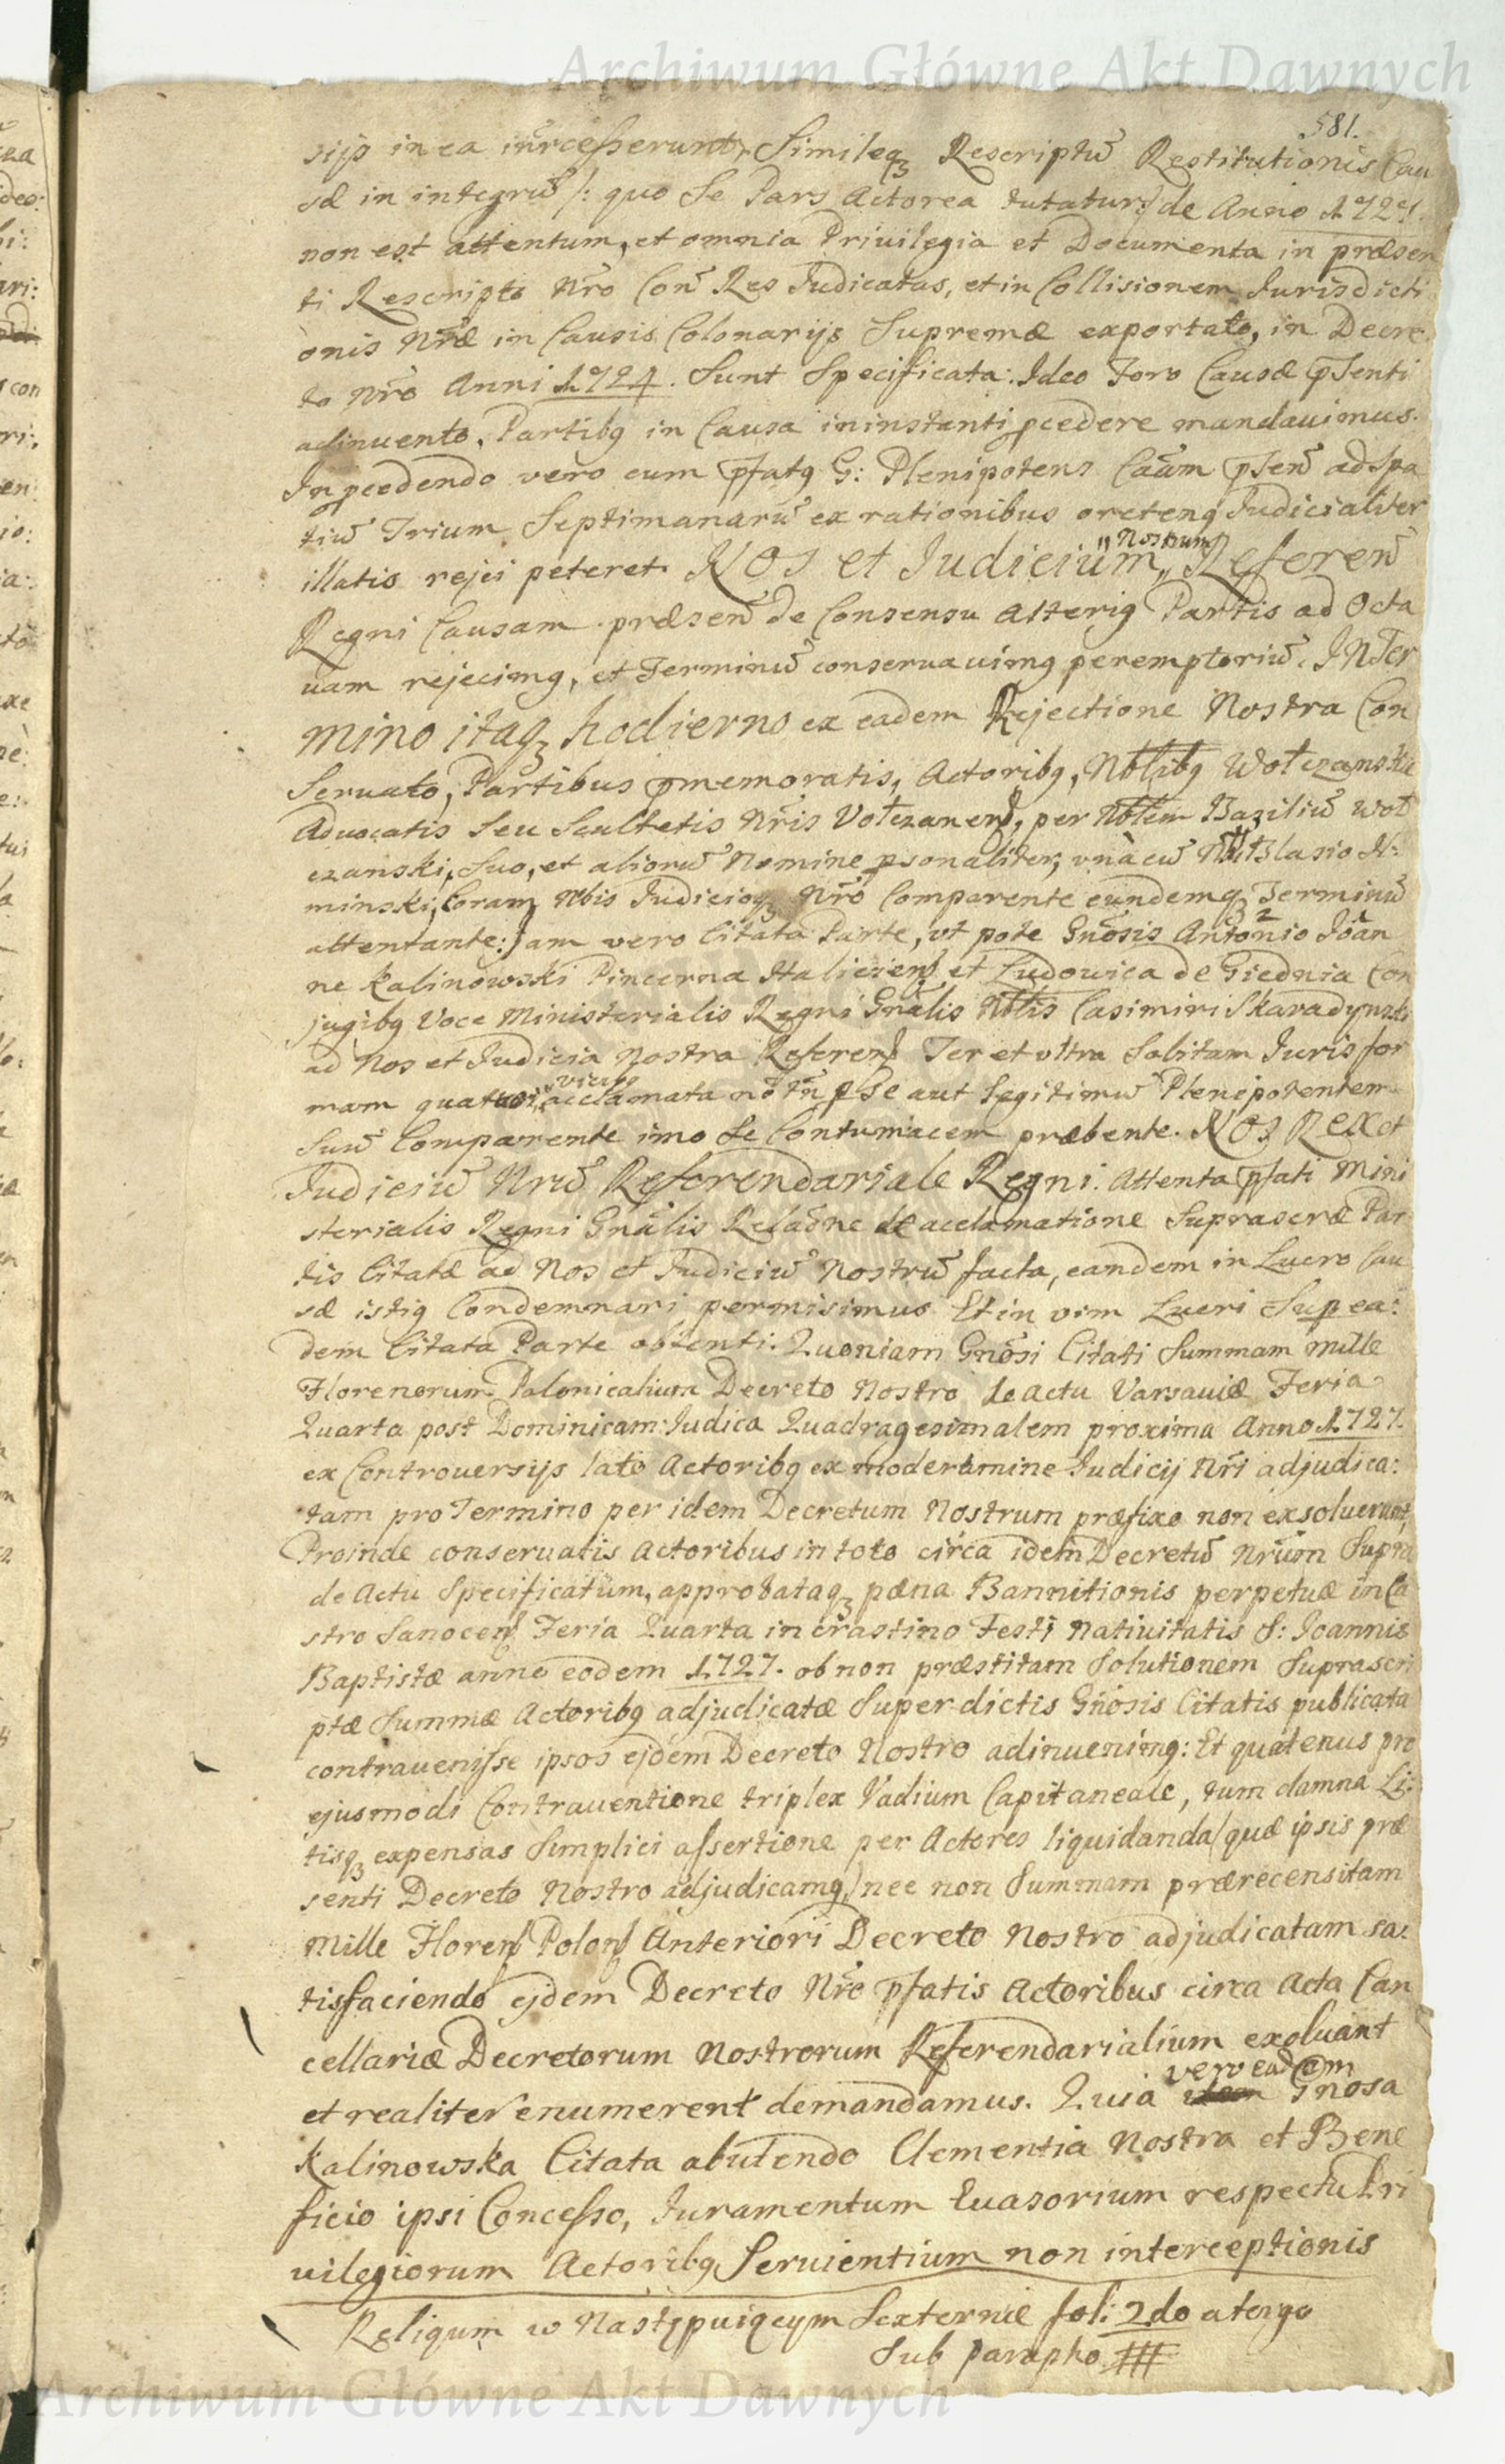 Archiwum Główne Akt Dawnych
581.
sijs in ea inrcesserunt, Simileq3 Rescriptū Restitutionis Cau
sæ in integrū /: quo se Pars Actorea tutatur :/ de Anno 1727.
non est attentum, et omnia Privilegia et Documenta in præsen
ti Rescripto Nro Con Res Judicatas, et in Collisionem Jurisdicti
onis Nræ in Causis Colonarijs Supremæ exportato, in Decre
to Nro Anni 1724. Sunt Specificata: Ideo Foro Causæ pſenti
adinuento, Partibq in Causa in instanti pcedere mandauimus.
In pcedendo vero cum pfatq G: Plenipotens Cāam pſen ad Spa
tiū Trium Septimanarū ex rationibus oretenq Judicialiter
illatis rejci peteret. NOS et Judicium „Nostrum„ Referen
Regni Causam præsen de Consensu Alteriq Partis ad Octa
uam rejecimq, et Terminū conseruauimq peremptoriū. IN Ter
mino itaq3 hodierno ex eadem Rejectione Nostra Con
Seruato, Partibus pmemoratis, Actoribq, Nbłibq Wołczanskie
Aduocatis seu Scultetis Nris Vołczanen, per Nbłem Baziliū Woł
czanski, Suo, et aliorū Nomine psonaliter, vnà cū Nbłi Blasio Il:
minski, Coram Nobis Judicioq3 Nro Comparente eundemq3 Terminū
attentante: Jam vero Citata Parte, vt pote Gnosis Antonio Joan
ne Kalinowski Pincerna Halicien et Ludouica de Giednia Con
jugibq Voce Ministerialis Regni Gnalis Nblis Casimiri Skaradynski
ad Nos et Judicia Nostra Referen Ter et vltra Solitam Juris for
mam quatuor „vicibq„ acclamata nō tn p se aut legitimū Plenipotentem
Suū Comparente imo se Contumacem præbente. NOS REX et
Judiciū Nrū Referendariale Regni. Attenta pfati Mini
sterialis Regni Gnalis Relaōne de acclamatione Suprascræ Par
tis Citatæ ad Nos et Judiciū Nostrū facta, eandem in Lucro Cau
sæ istiq Condemnari permisimus. Et in vim Lucri Sup ea:
dem Citata Parte obtenti. Quoniam Gnosi Citati Summam mille
Florenorum Polonicalium Decreto Nostro de actu Varsauiæ Feria
Quarta post Dominicam Judica Quadragesimalem proxima Anno 1727.
ex Controuersijs lato Actoribq ex moderamine Judicij Nri adjudica:
tam pro Termino per idem Decretum Nostrum præfixo non exsoluerunt,
Proinde conseruatis Actoribus in toto circa idem Decretū Nrum Supra
de Actu Specificatum, approbataq3 pæna Bannitionis perpetuæ in Ca
stro Sanocen Feria Quarta in crastino Festi Natiuitatis S: Joannis
Baptistæ anno eodem 1727. ob non præstitam Solutionem Suprascri
ptæ Summæ Actoribq adjudicatæ Super dictis Gnosis Citatis publicata
contrauenisse ipsos ejdem Decreto Nostro adinuenimq: Et quatenus pro
ejusmodi Contrauentione triplex Vadium Capitaneale, tum damna Li:
tisq3 expensas Simplici assertione per Actores liquidanda /quæ ipsis præ
senti Decreto Nostro adjudicamq/ nec non Summam prærecensitam
Mille Floren Polon Anteriori Decreto Nostro adjudicatam sa:
tisfaciendo ejdem Decreto Nro pfatis Actoribus circa Acta Can
cellariæ Decretorum Nostrorum Referendarialium exoluant
et realiter enumerent demandamus. Quia vero eadem Gnosa
Kalinowska Citata abutendo Clementia Nostra et Bene
ficio ipsi Concesso, Juramentum Euasorium respectu Pri
uilegiorum Actoribq Seruientium non interceptionis
Reliqum w Następuiącym Sexternie foli: 2do atergo
Sub parapho #
Archiwum Główne Akt Dawnych